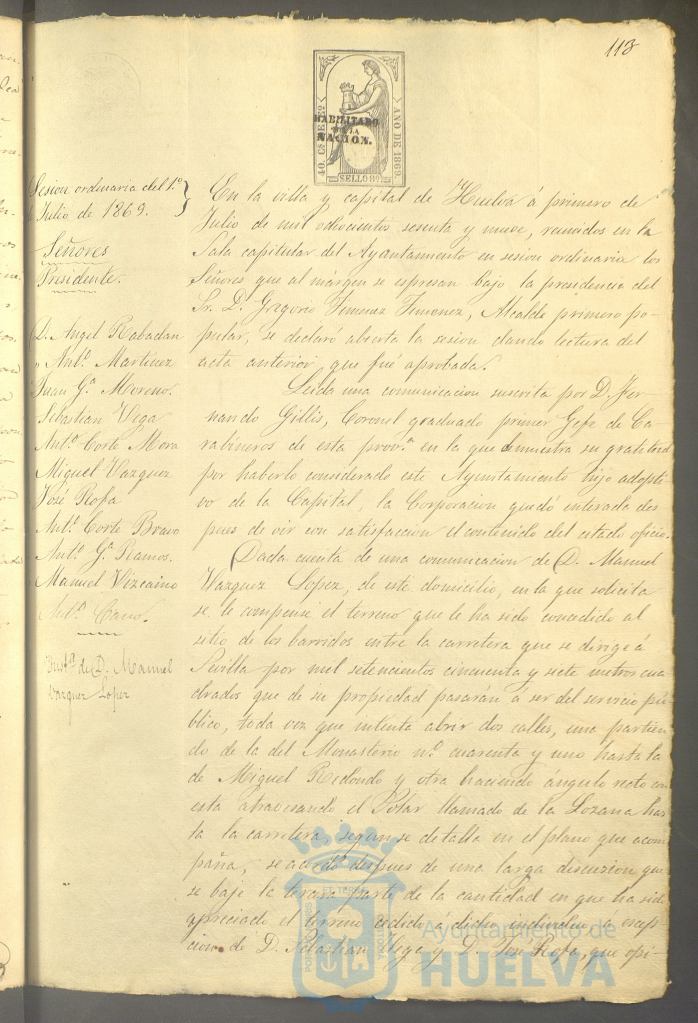 113
HABILITADO
POR LA
NACION.
40. Cs DE Eº
AÑO DE 1869.
SELLO 8º
Sesion ordinaria del 1.º
de Julio de 1869.
Señores
Presidente.
D. Angel Rabadan
" Ant.º Martinez
Juan G.ª Moreno.
Sebastian Vega
Ant.º Corte Mora
Miguel Vazquez
José Rofa
Ant.º Corte Bravo
Ant.º G.ª Ramos.
Manuel Vizcaino
Ant.º Cano.
Inst.ª de D. Manuel
Vazquez Lopez
En la villa y capital de Huelva á primero de
Julio de mil ochocientos sesenta y nueve, reunidos en la
Sala capitular del Ayuntamiento en sesion ordinaria los
Señores que al márgen se espresan bajo la presidencia del
Sr. D. Gregorio Jimenez Jimenez, Alcalde primero po-
pular, se declaró abierta la sesion dando lectura del
acta anterior que fué aprobada.
Leida una comunicacion suscrita por D. Fer-
nando Gillis, Coronel graduado primer Gefe de Ca-
rabineros de esta prov.ª en la que demuestra su gratitud
por haberlo considerado este Ayuntamiento hijo adopti-
vo de la Capital, la Corporacion quedó enterada des
pues de oir con satisfaccion el contenido del citado oficio.
Dada cuenta de una comunicacion de D. Manuel
Vazquez Lopez, de este domicilio, en la que solicita
se le compense el terreno que le ha sido concedido al
sitio de los barridos entre la carretera que se dirige á
Sevilla por mil setecientos cincuenta y siete metros cua
drados que de su propiedad pasarán á ser del servicio pú-
blico, toda vez que intenta abrir dos calles, una partien
do de la del Monasterio nº. cuarenta y uno hasta la
de Miguel Redondo y otra haciendo ángulo recto con
esta atravesando el Solar llamado de la Lozana has
ta la carretera, segun se detalla en el plano que acom
paña, se acordó despues de una larga discusion que
se baje la tercera parte de la cantidad en que ha sido
apreciado el terreno cedido á dicho individuo, á excep-
cion de D. Sebastian Vega y D. José Rofa, que opi-
Ayuntamiento de
HUELVA